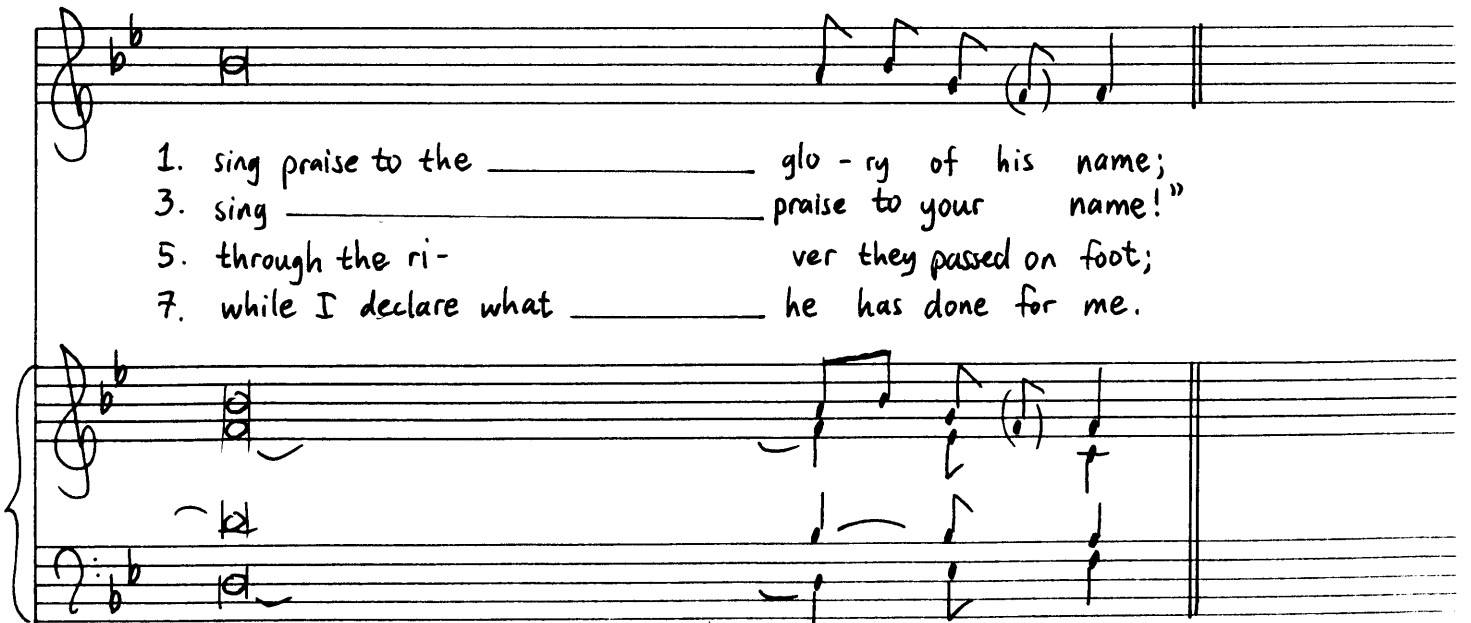 1. sing praise to the __________ glo - ry of his name;
3. sing __________ praise to your name!”
5. through the ri- ver they passed on foot;
7. while I declare what __________ he has done for me.